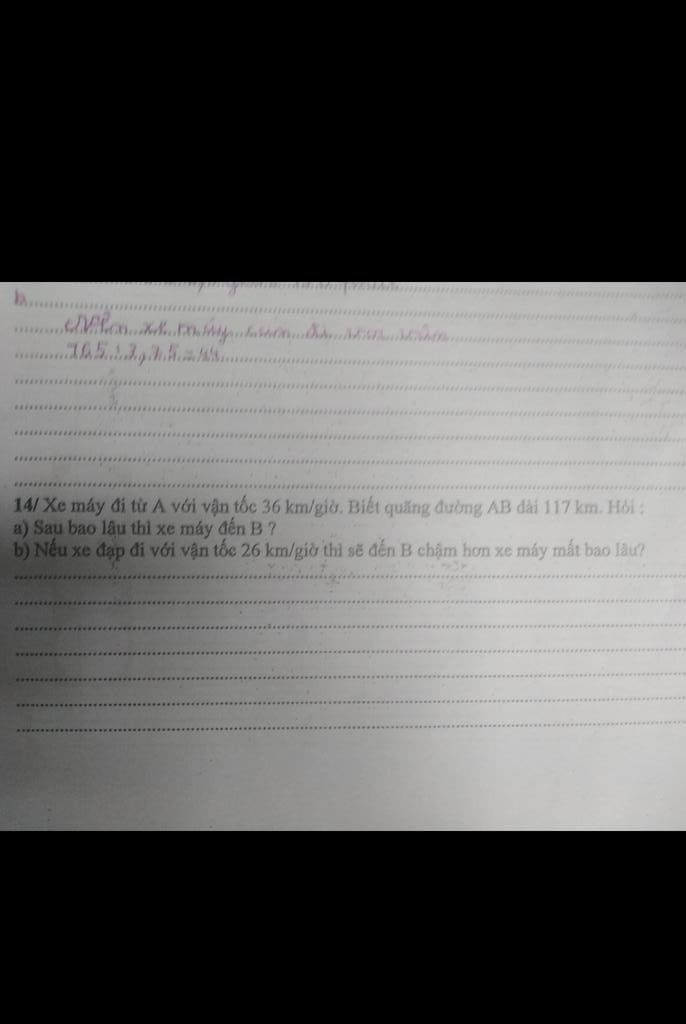 b
xe máy
165 : 3,75 = 44
14/ Xe máy đi từ A với vận tốc 36 km/giờ. Biết quãng đường AB dài 117 km. Hỏi :
a) Sau bao lâu thì xe máy đến B ?
b) Nếu xe đạp đi với vận tốc 26 km/giờ thì sẽ đến B chậm hơn xe máy mất bao lâu?